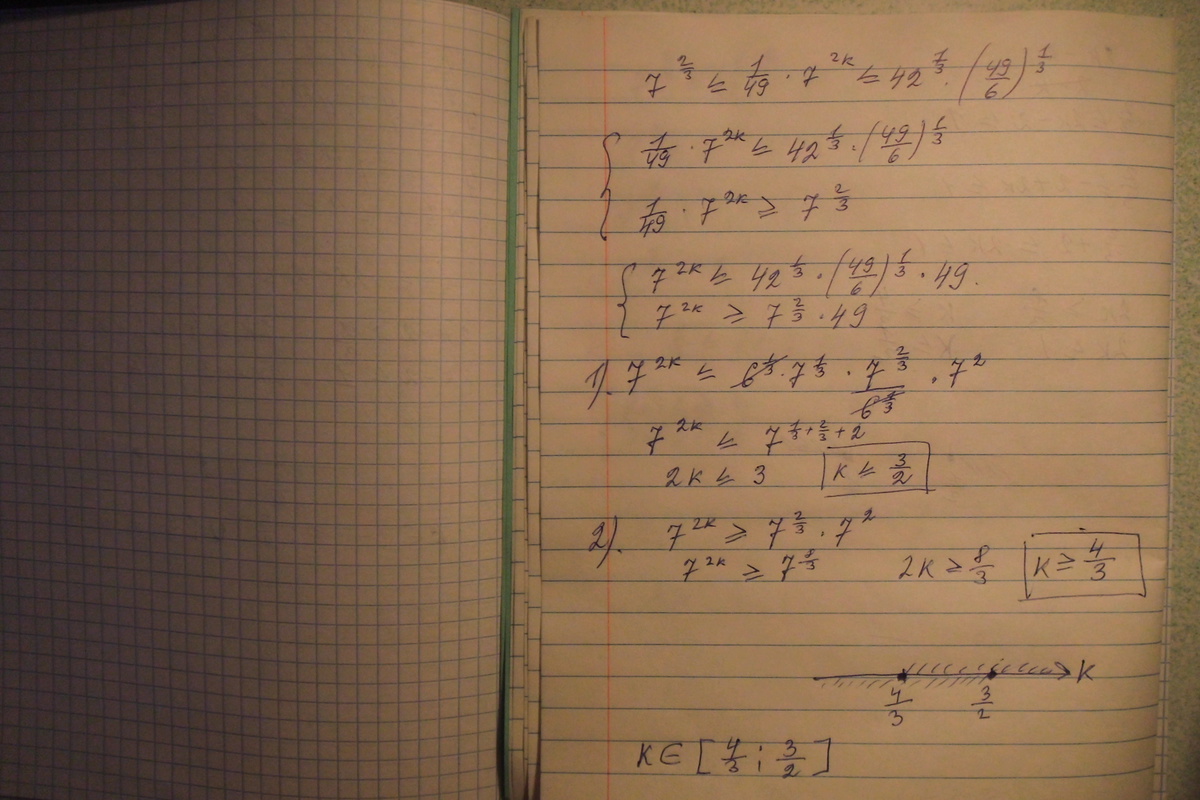 7^(2/3) ≤ 1/49 · 7^(2k) ≤ 42^(1/3) · (49/6)^(1/3)
{ 1/49 · 7^(2k) ≤ 42^(1/3) · (49/6)^(1/3)
1/49 · 7^(2k) ≥ 7^(2/3)
{ 7^(2k) ≤ 42^(1/3) · (49/6)^(1/3) · 49.
7^(2k) ≥ 7^(2/3) · 49
1). 7^(2k) ≤ 6^(1/3) · 7^(1/3) · 7^(2/3)/6^(1/3) · 7^2
7^(2k) ≤ 7^(1/3 + 2/3 + 2)
2k ≤ 3 k ≤ 3/2
2). 7^(2k) ≥ 7^(2/3) · 7^2
7^(2k) ≥ 7^(8/3) 2k ≥ 8/3 k ≥ 4/3
k
4/3 3/2
k ∈ [4/3 ; 3/2]